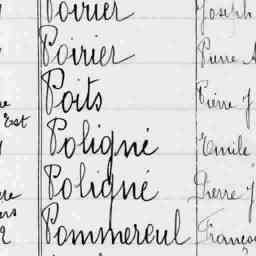 Poirier Joseph
Poirier Pierre
Poits Pierre J
Est
Poligné Emile
Poligné Pierre J
Pommereul François